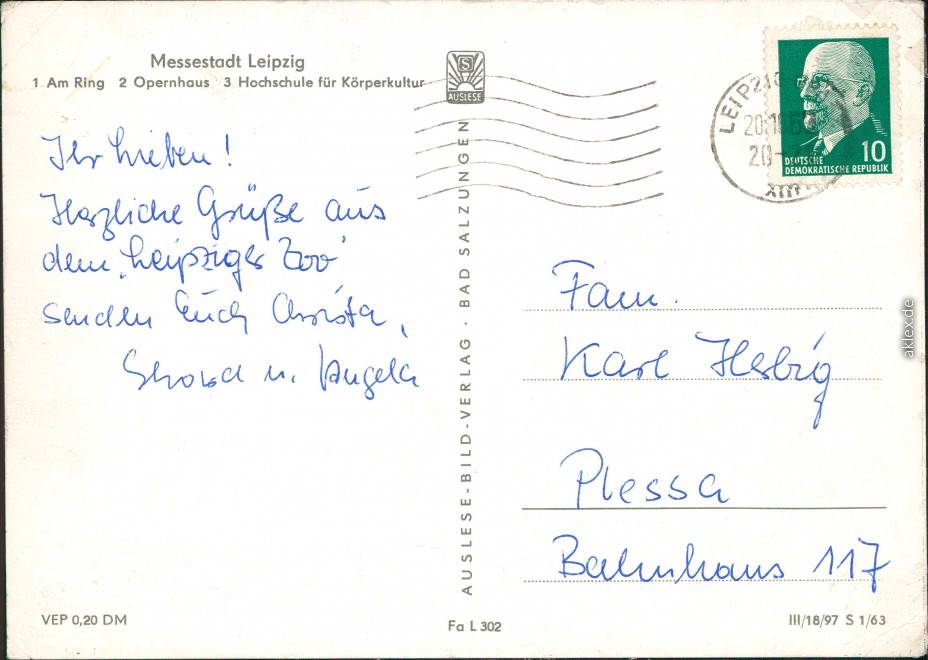 Messestadt Leipzig
1 Am Ring 2 Opernhaus 3 Hochschule für Körperkultur
Ihr Lieben!
Herzliche Grüße aus
dem "Leipziger Zoo"
senden Euch Christa,
u. Angela
AUSLESE
AUSLESE-BILD-VERLAG · BAD SALZUNGEN
LEIPZIG
20.10.63
20-
XIII
10
DEUTSCHE
DEMOKRATISCHE REPUBLIK
Fam.
Karl Herbig
Plessa
Bahnhaus 117
VEP 0,20 DM
Fa L 302
III/18/97 S 1/63
aklex.de